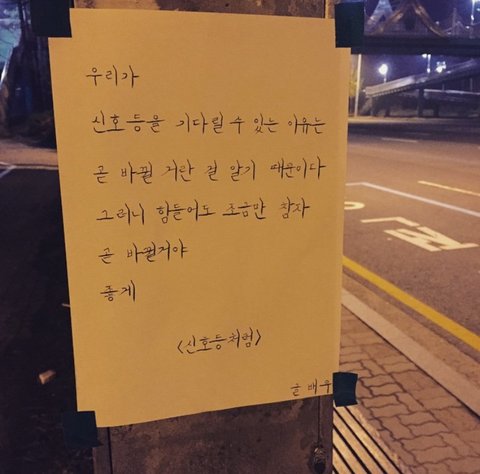 우리가
신호등을 기다릴 수 있는 이유는
곧 바뀔 거란 걸 알기 때문이다
그러니 힘들어도 조금만 참자
곧 바뀔거야
좋게
<신호등처럼>
글 배우